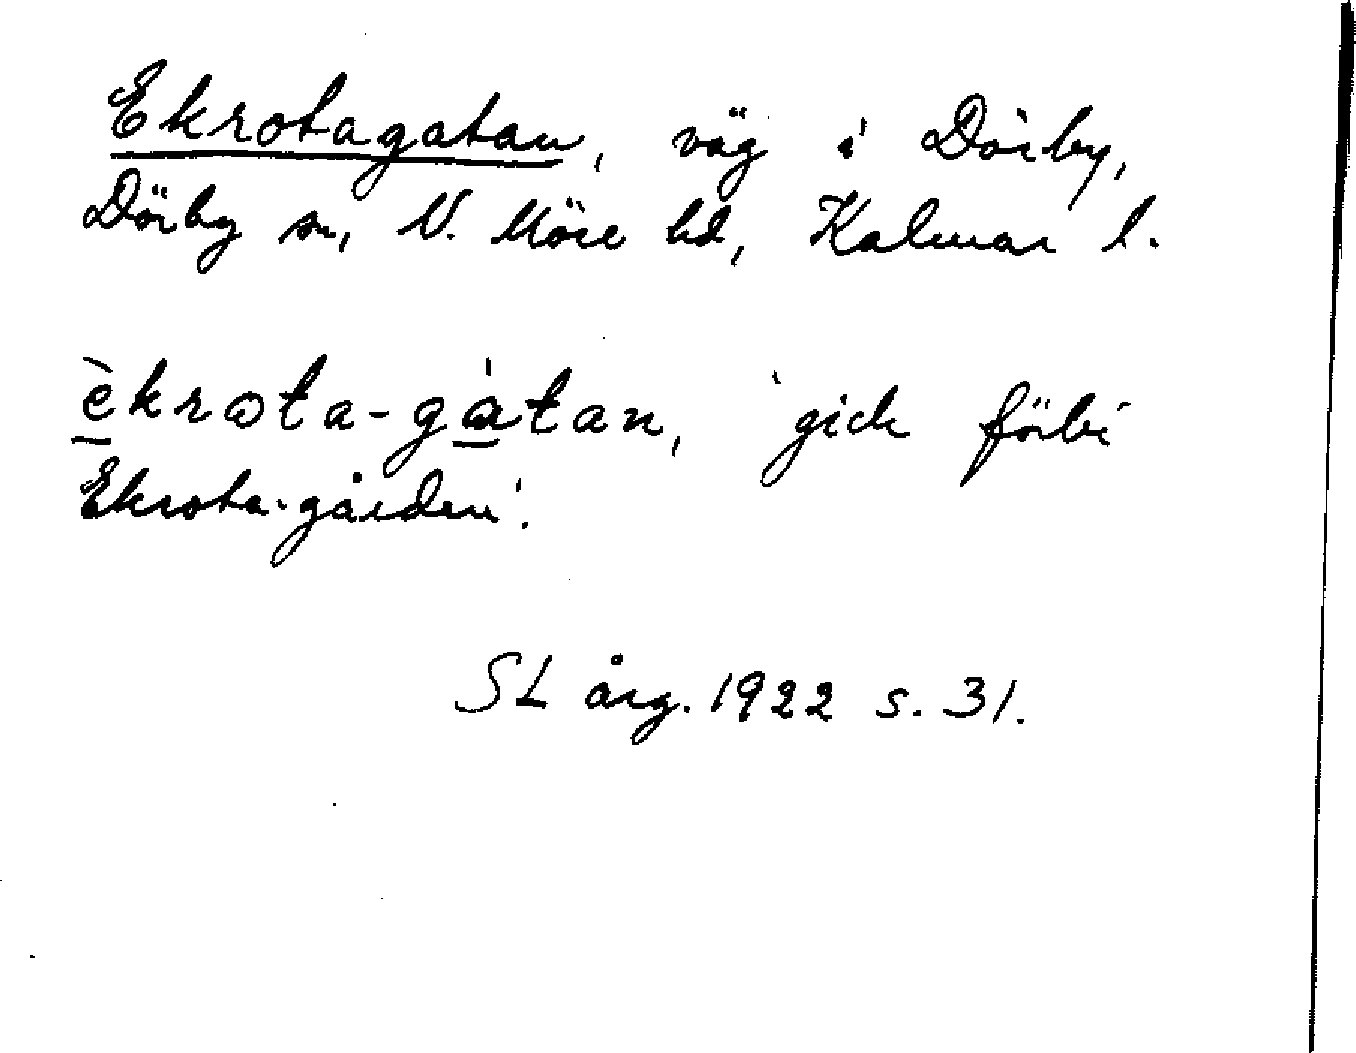 Ekrotagatan, väg i Dörby,
Dörby sn, N. Möre hd, Kalmar l.
èkrota-gàtan, 'gick förbi
Ekrota-gården'.
SL årg. 1922 s. 31.